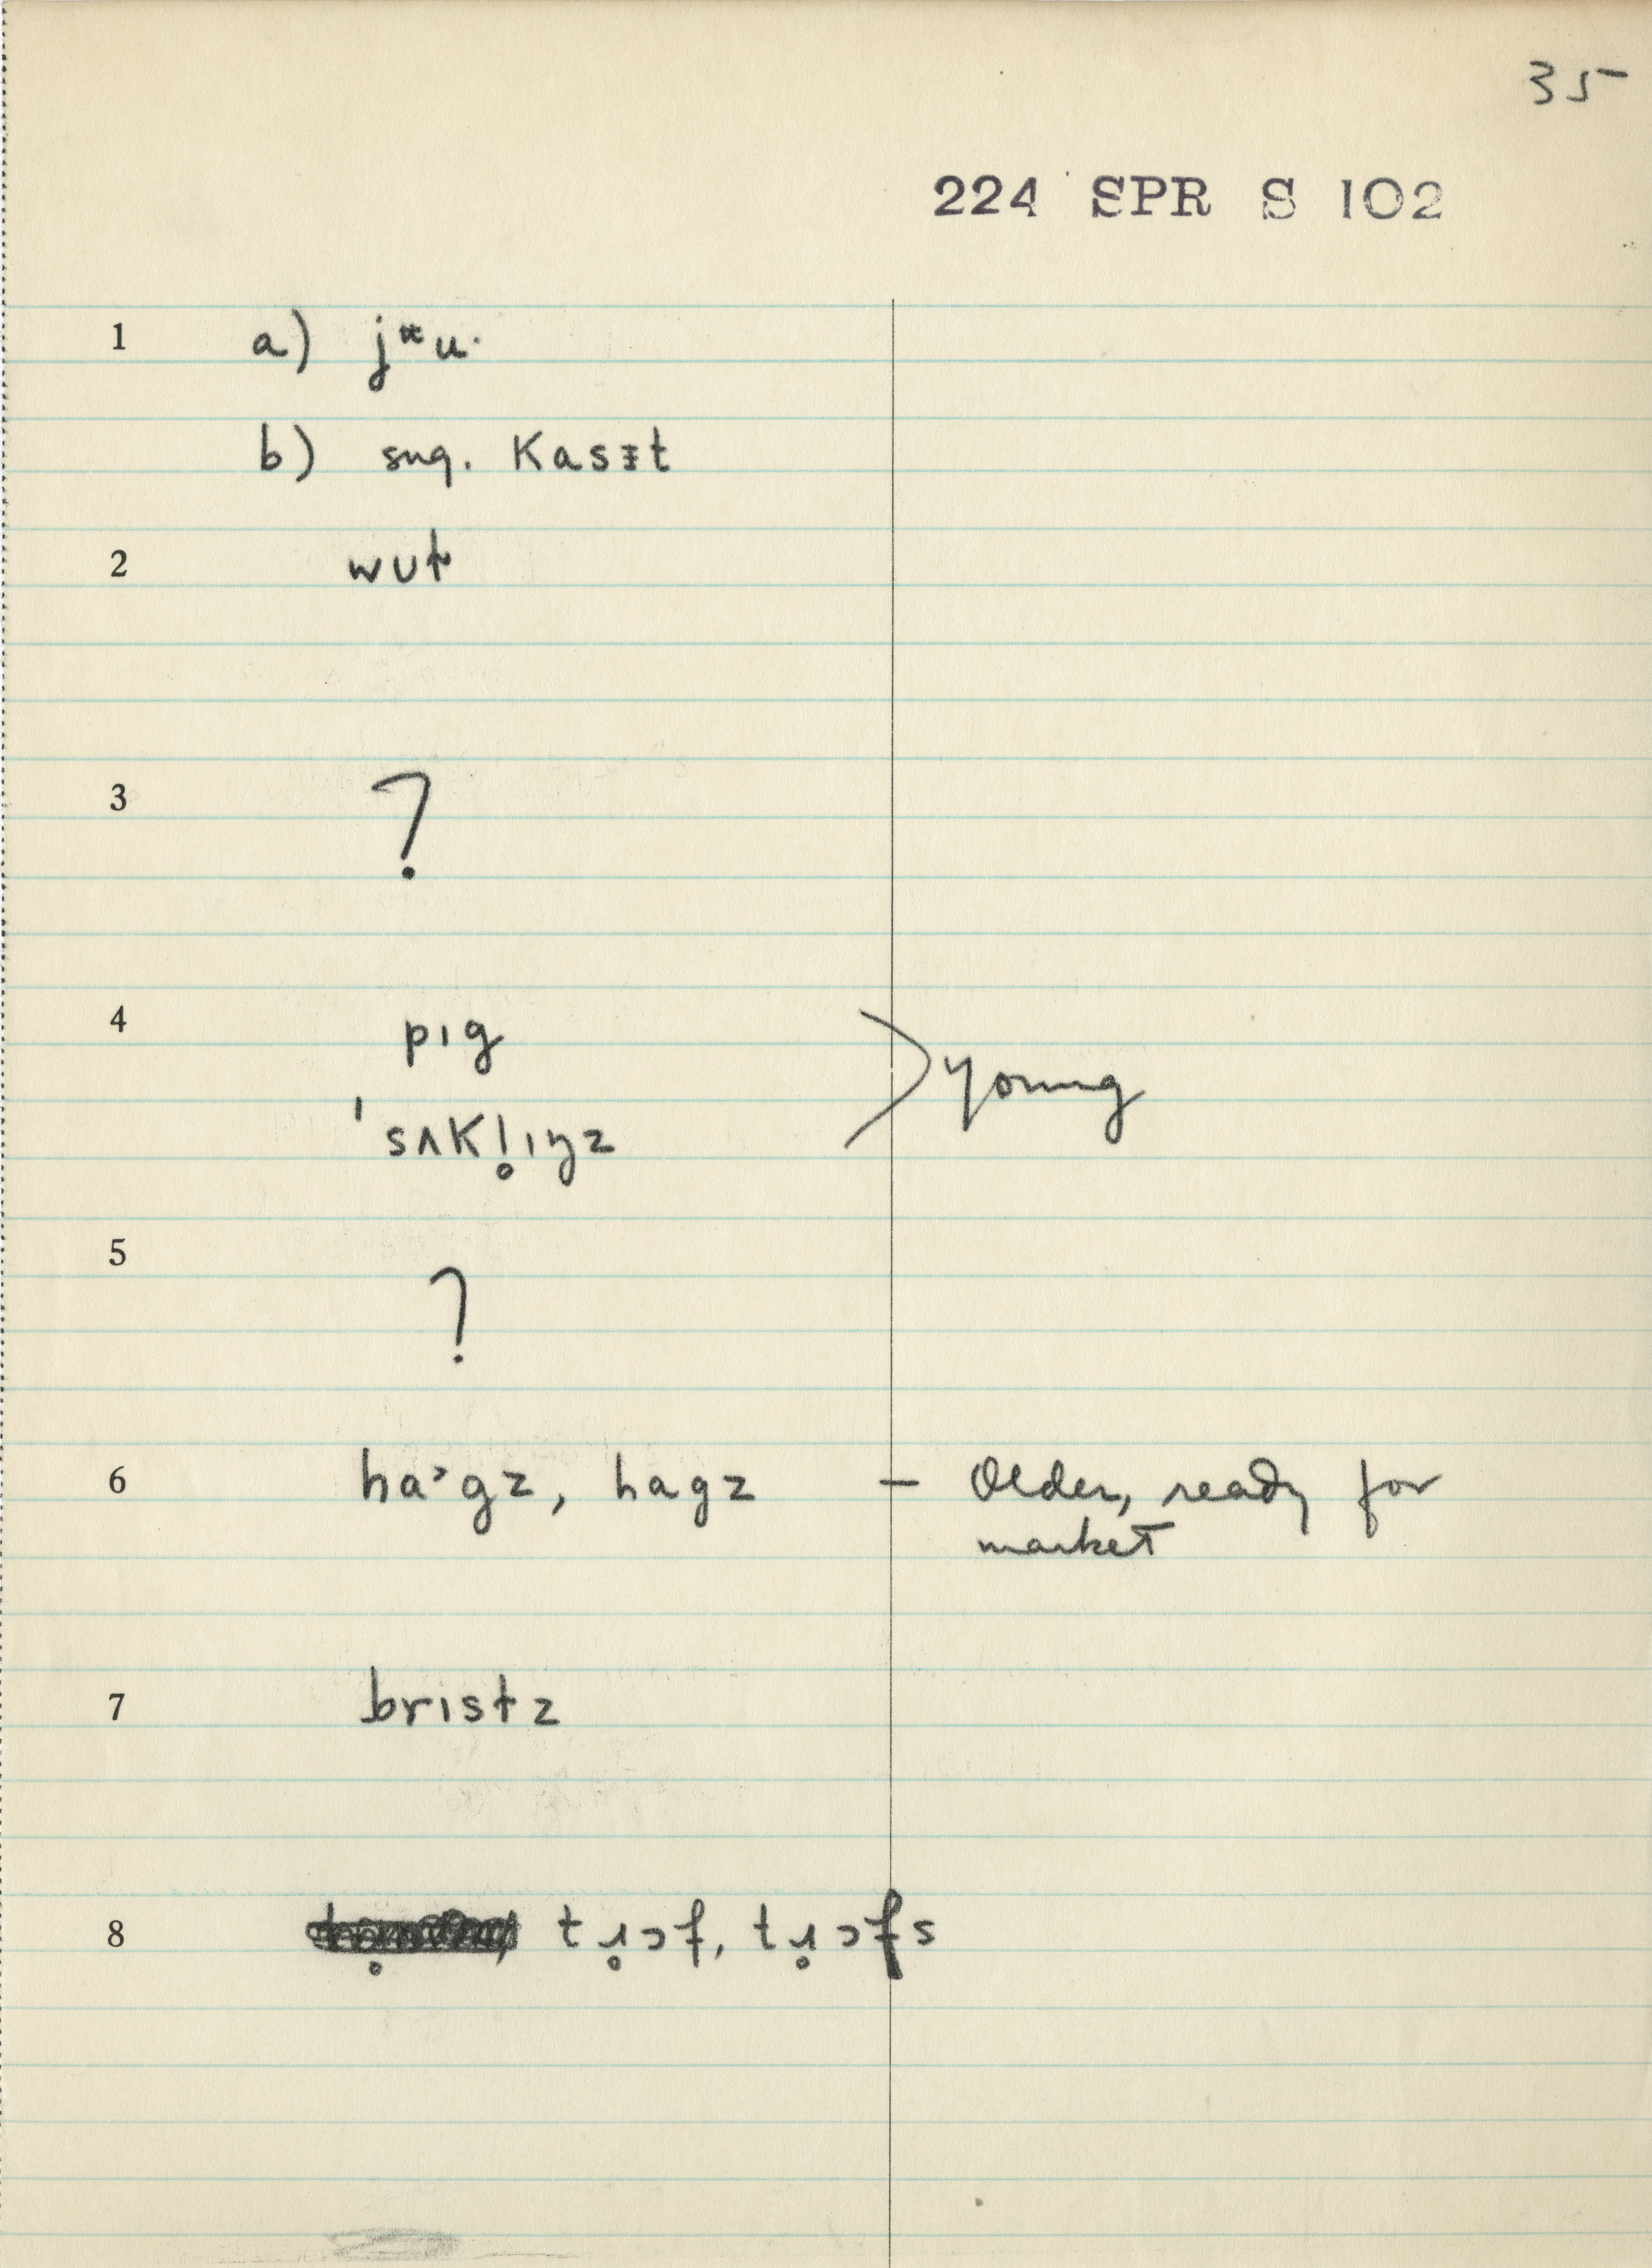 35
224 SPR S 102
1 a) jᵚu·
b) sug. kasᵻt
2 wut
3 ?
4 pɪg
'sʌkl̥ɪŋz
young
5 ?
6 ha˃gz, hagz – Older, ready for
market
7 brɪstz
8 tɹ̥ɔf, tɹ̥ɔfs